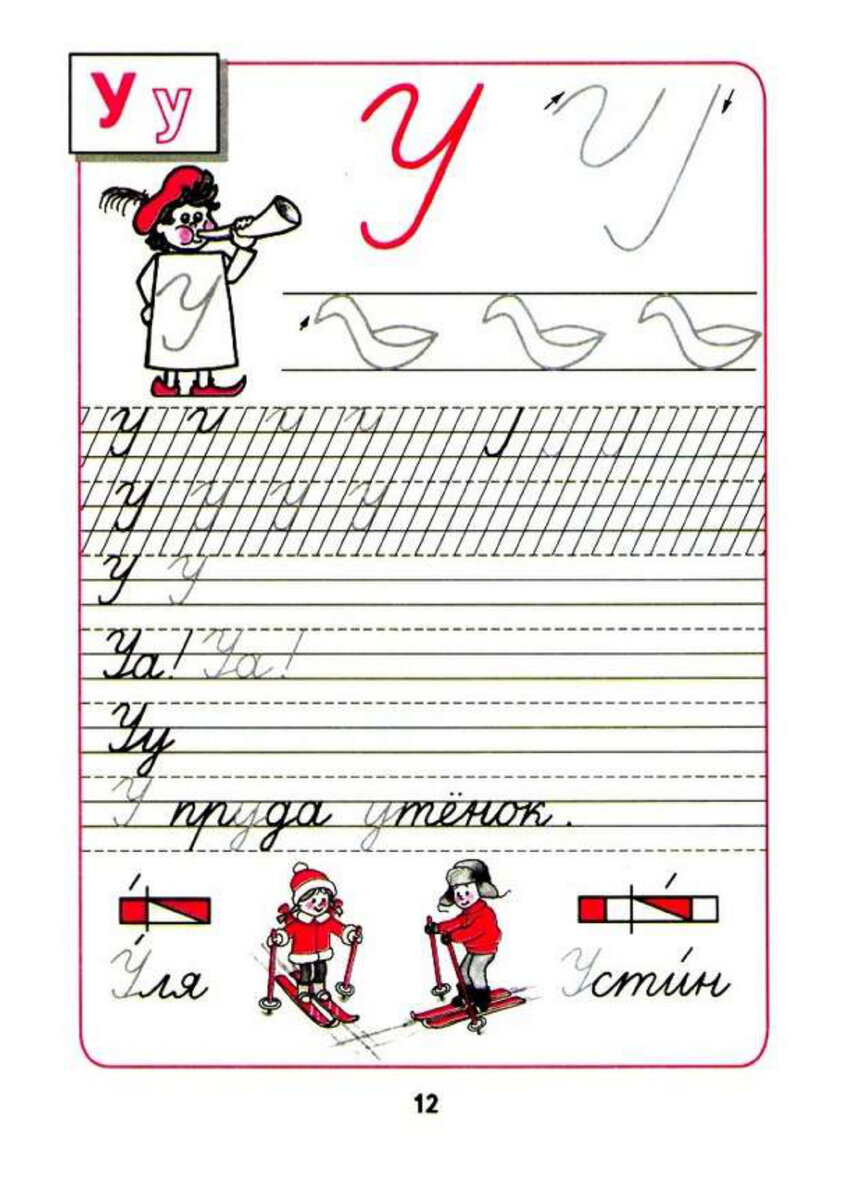 У у
У У
У
У У У У
У У У У
У У
Уа! Уа!
Уу
У пруда утёнок.
У́ля Усти́н
12